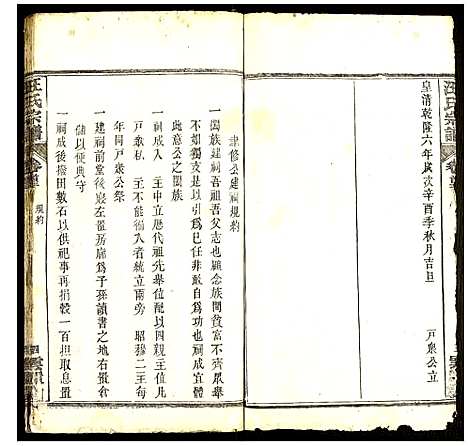 汪氏宗譜
皇清乾隆六年歲次辛酉季秋月吉旦
戸衆公立
聿修公建祠規約
一闔族建祠吾祖吾父志也顧念族間貧富不齊眾舉
不如獨支是以已任非敢自以爲功也祠成宜體
此意公之闔族
一祠成入主中立歷代祖先擧位配以四親主其
戸衆私主不能徧入者統立兩旁昭穆二主每
年同戸衆公祭
一建祠前堂後房廂爲子孫讀書之地右置倉
儲以便典守
一祠成後撥田數石以供祀事再捐穀一百担取息置
汪氏宗譜
規約